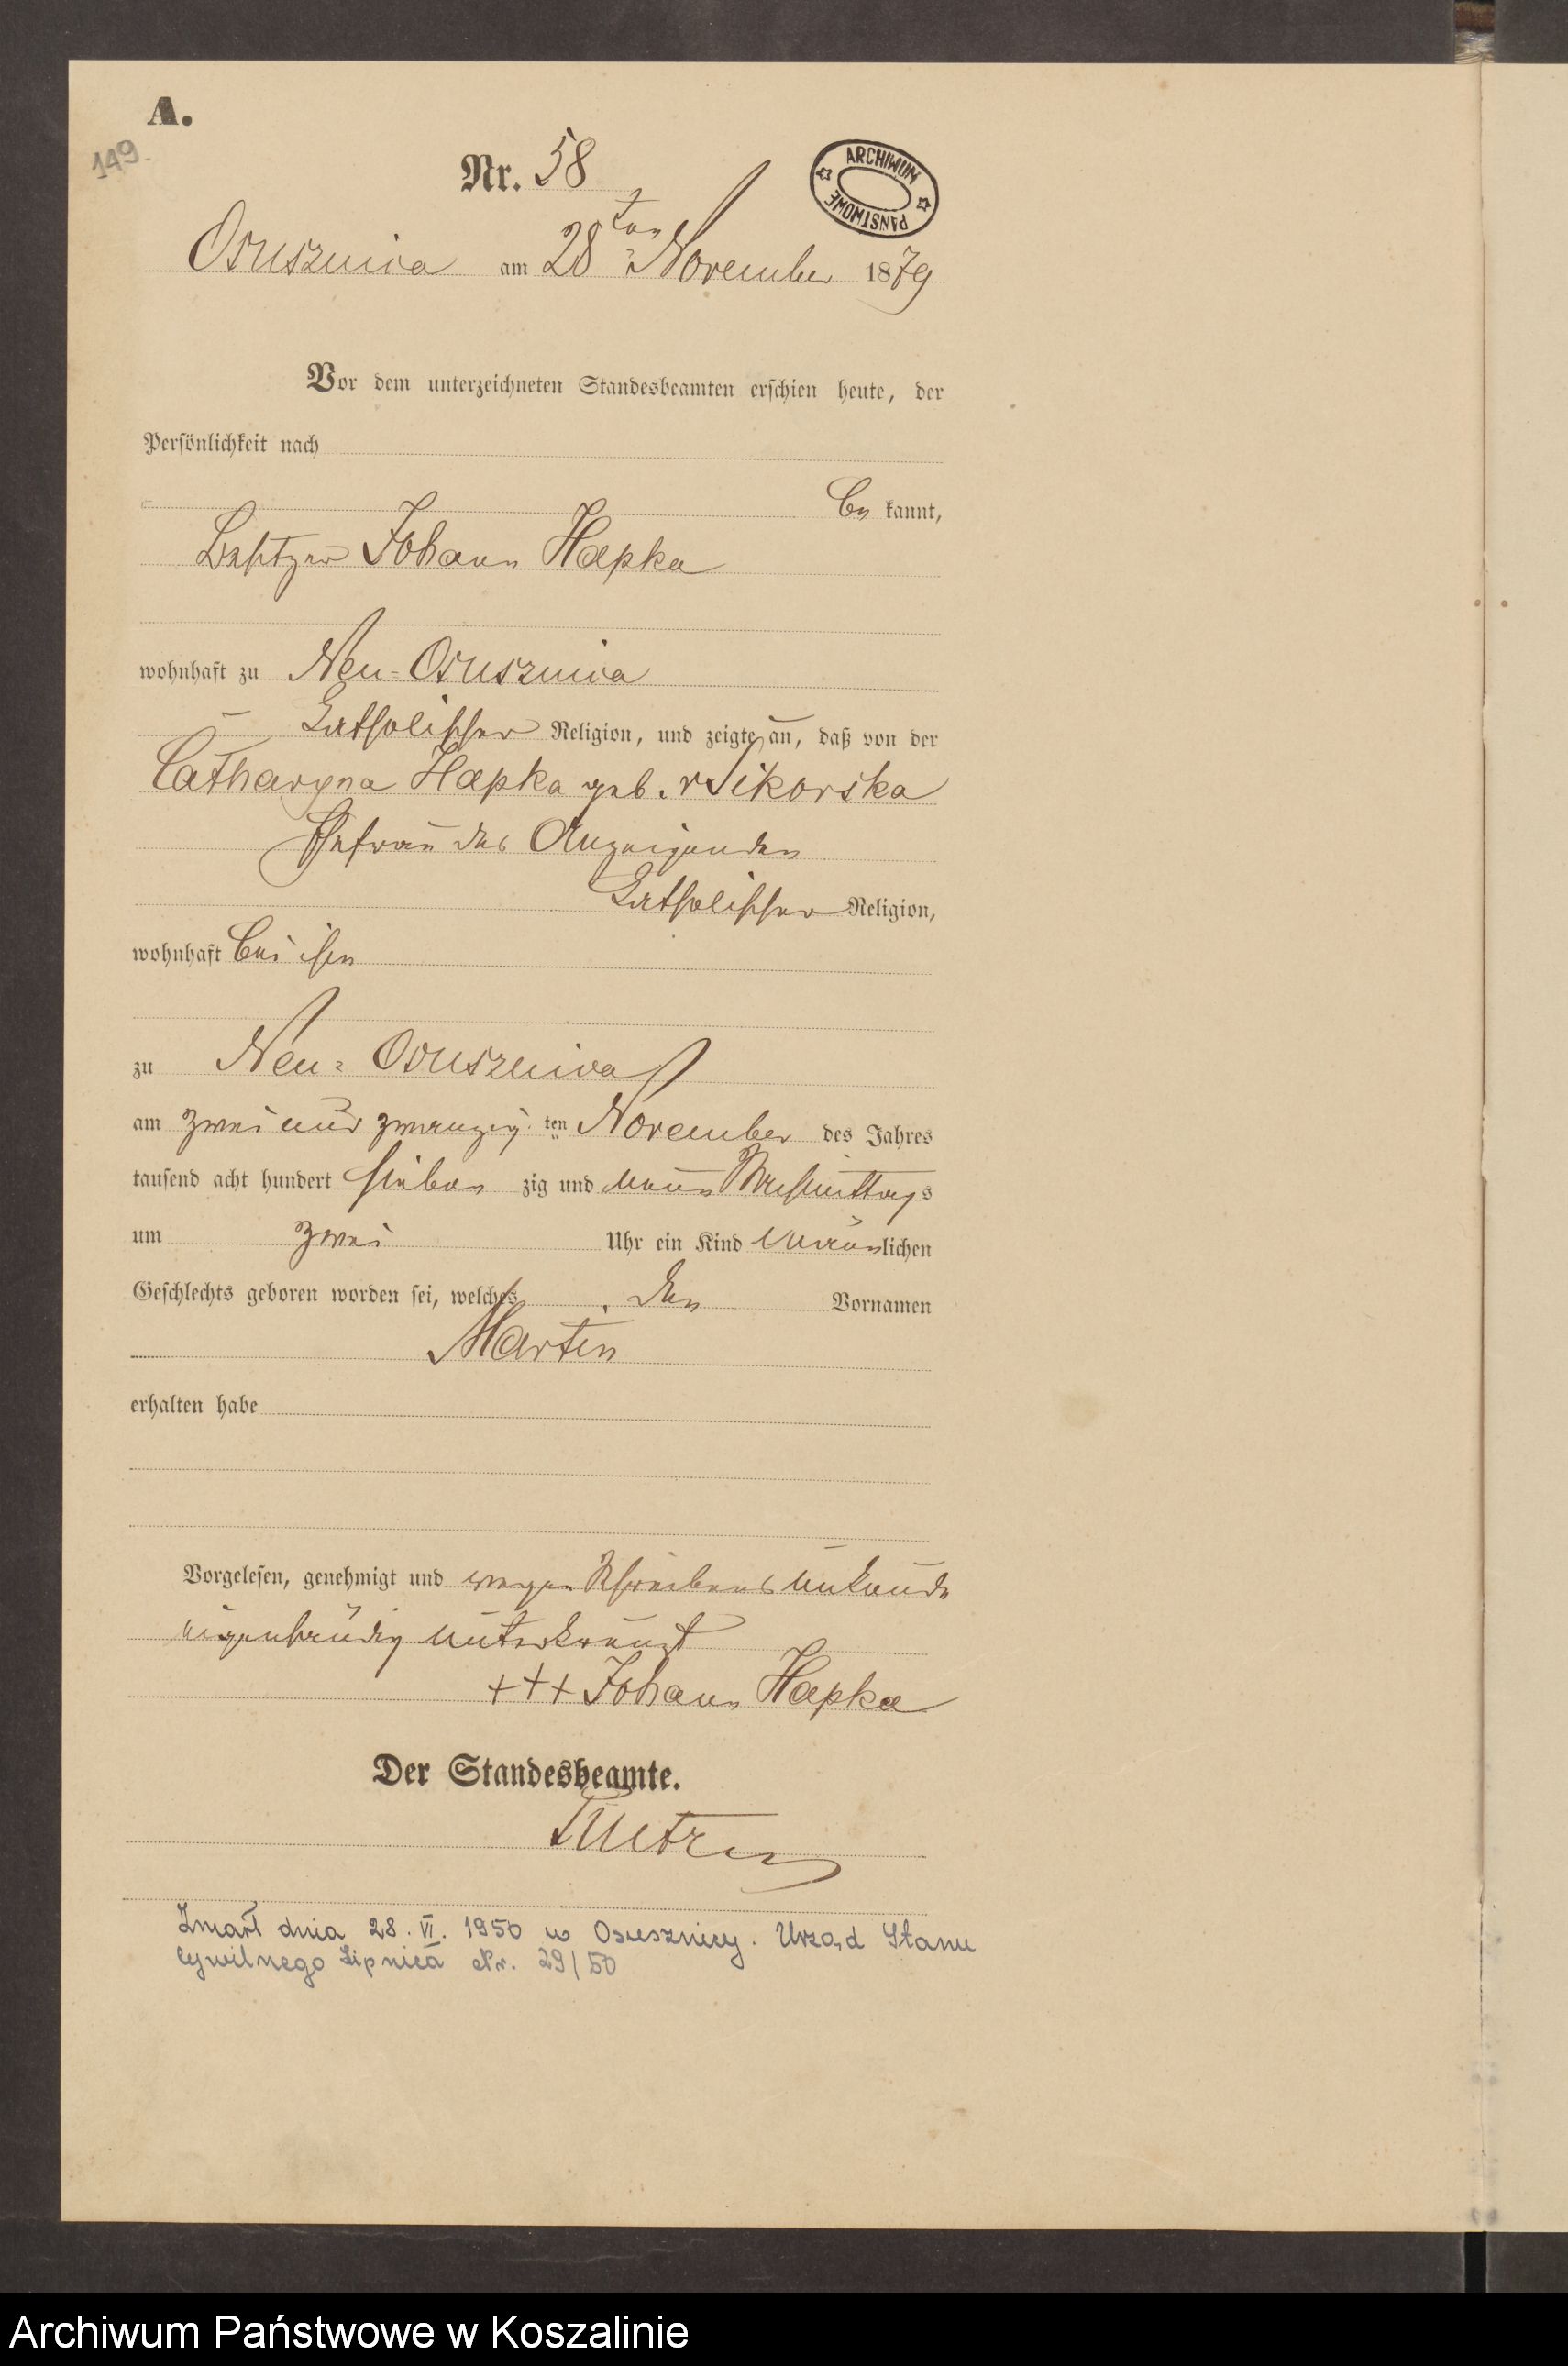 A.
149.
Nr. 58
ARCHIWUM PAŃSTWOWE
Osusznica am 28ten November 1879
Vor dem unterzeichneten Standesbeamten erschien heute, der
Persönlichkeit nach
be kannt,
Besitzer Johann Hapka
wohnhaft zu Neu-Osusznica
katholischer Religion, und zeigte an, daß von der
Catharyna Hapka geb. v Sikorska
Ehefrau des Anzeigenden
katholischer Religion,
wohnhaft bei ihm
zu Neu-Osusznica
am zwei und zwanzig ten November des Jahres
tausend acht hundert sieben zig und neun Nachmittags
um zwei Uhr ein Kind männlichen
Geschlechts geboren worden sei, welches den Vornamen
Martin
erhalten habe
Vorgelesen, genehmigt und wegen Schreibens Unkunde
eigenhändig unterkreuzt
+++ Johann Hapka
Der Standesbeamte.
Zmarł dnia 28. VI. 1950 w Osusznicy. Urząd Stanu
Cywilnego Lipnica Nr. 29/50
Archiwum Państwowe w Koszalinie